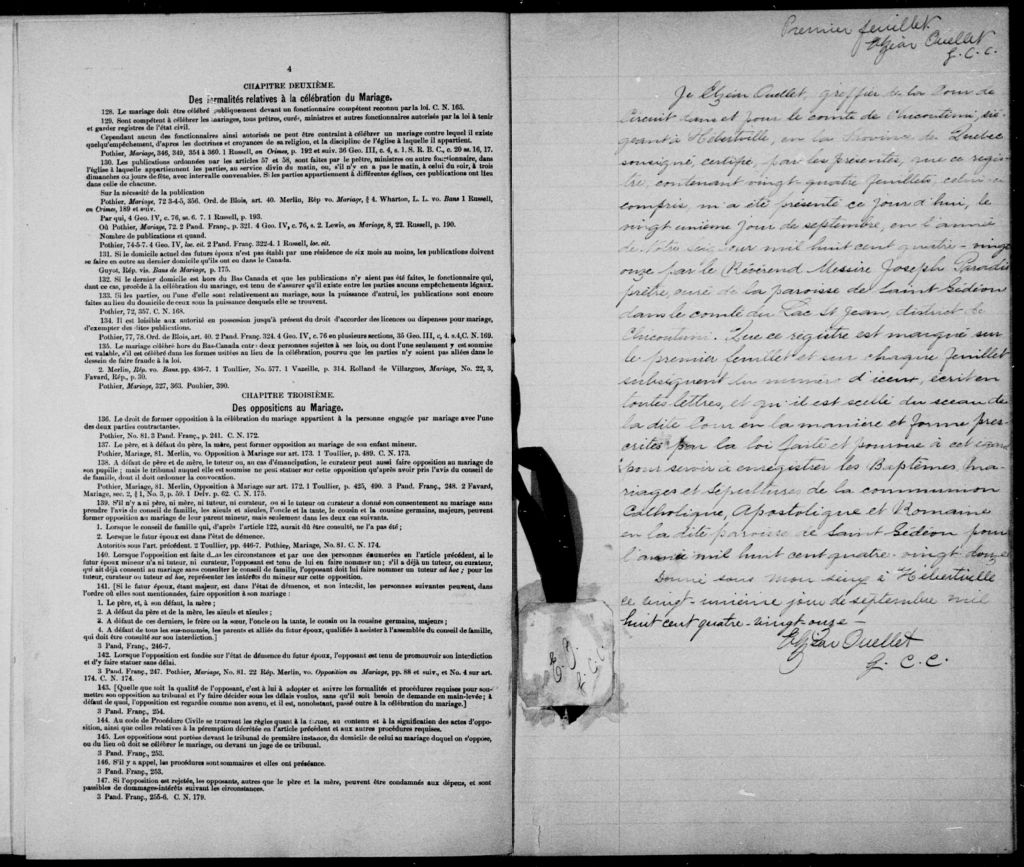 4
CHAPITRE DEUXIÈME.
Des formalités relatives à la célébration du Mariage.
128. Le mariage doit être célébré publiquement devant un fonctionnaire compétent reconnu par la loi. C. N. 165.
129. Sont compétents à célébrer les mariages, tous prêtres, curés, ministres et autres fonctionnaires autorisés par la loi à tenir
et garder registres de l'état civil.
Cependant aucun des fonctionnaires ainsi autorisés ne peut être contraint à célébrer un mariage contre lequel il existe
quelqu'empêchement, d'après les doctrines et croyances de sa religion, et la discipline de l'église à laquelle il appartient.
Pothier, Mariage, 346, 349, 354 à 360. 1 Russell, on Crimes, p. 192 et suiv. 36 Geo. III, c. 4, s. 1. S. R. B. C., c. 20 ss. 16, 17.
130. Les publications ordonnées par les articles 57 et 58, sont faites par le prêtre, ministres ou autre fonctionnaire, dans
l'église à laquelle appartiennent les parties, au service divin du matin, ou, s'il n'y en a pas le matin, à celui du soir, à trois
dimanches ou jours de fête, avec intervalle convenables. Si les parties appartiennent à différentes églises, ces publications ont lieu
dans celle de chacune.
Sur la nécessité de la publication
Pothier, Mariage, 72 3-4-5, 356. Ord. de Blois, art. 40. Merlin, Rép vo. Mariage, § 4. Wharton, L. L. vo. Bans 1 Russell,
on Crimes, 189 et suiv.
Par qui, 4 Geo. IV, c. 76, ss. 6. 7. 1 Russell, p. 193.
Où Pothier, Mariage, 72. 2 Pand. Franç. p. 321. 4 Geo. IV, c. 76, s. 2. Lewis, on Mariage, 8, 22. Russell, p. 190.
Nombre de publications et quand.
Pothier, 74-5-7. 4 Geo. IV, loc. cit. 2 Pand. Franç. 322-4. 1 Russell, loc. cit.
131. Si le domicile actuel des futurs époux n'est pas établi par une résidence de six mois au moins, les publications doivent
se faire en outre au dernier domicile qu'ils ont eu dans le Canada.
Guyot, Rép. vis. Bans de Mariage, p. 175.
132. Si le dernier domicile est hors du Bas Canada et que les publications n'y aient pas été faites, le fonctionnaire qui,
dans ce cas, procède à la célébration du mariage, est tenu de s'assurer qu'il existe entre les parties aucuns empêchements légaux.
133. Si les parties, ou l'une d'elle sont relativement au mariage, sous la puissance d'autrui, les publications sont encore
faites au lieu du domicile de ceux sous la puissance desquels elle se trouvent.
Pothier, 72, 357. C. N. 168.
134. Il est loisible aux autorité en possession jusqu'à présent du droit d'accorder des licences ou dispenses pour mariage,
d'exempter des dites publications.
Pothier, 77, 78. Ord. de Blois, art. 40. 2 Pand. Franç. 324. 4 Geo. IV, c. 76 en plusieurs sections, 35 Geo. III, c, 4. s. 4, C. N. 169.
135. Le mariage célébré hors du Bas-Canada entre deux personnes sujettes à ses lois, ou dont l'une seulement y est soumise
est valable, s'il est célébré dans les formes usitées au lieu de la célébration, pourvu que les parties n'y soient pas allées dans le
dessein de faire fraude à la loi.
2. Merlin, Rép. vo. Bans. pp. 436-7. 1 Toullier, No. 577. 1 Vazeille, p. 314. Rolland de Villargues, Mariage, No. 22, 3,
Favard, Rép., p. 30.
Pothier, Mariage, 327, 363. Pouhier, 390.
CHAPITRE TROISIÈME.
Des oppositions au Mariage.
136. Le droit de former opposition à la célébration du mariage appartient à la personne engagée par mariage avec l'une
des deux parties contractantes.
Pothier, No. 81. 3 Pand. Franç., p. 241. C. N. 172.
137. Le père, et à défaut du père, la mère, peut former opposition au mariage de son enfant mineur.
Pothier, Mariage, 81. Merlin, vo. Opposition à Mariage sur art. 173. 1 Toullier, p. 489. C. N. 173.
138. A défaut de père et de mère, le tuteur ou, au cas d'émancipation, le curateur peut aussi faire opposition au mariage de
son pupille ; mais le tribunal auquel elle est soumise ne peut statuer sur cette opposition qu'après avoir pris l'avis du conseil de
famille, dont il doit ordonner la convocation.
Pothier, Mariage, 81. Merlin, Opposition à Mariage sur art. 172. 1 Toullier, p. 425, 490. 3 Pand. Franç., 248. 2 Favard,
Mariage, sec. 2, § 1, No. 3, p. 59. 1 Delv. p. 62. C. N. 175.
139. S'il n'y a ni père, ni mère, ni tuteur, ni curateur, ou si le tuteur on curateur a donné son consentement au mariage sans
prendre l'avis du conseil de famille, les aïeuls et aïeules, l'oncle et la tante, le cousin et la cousine germains, majeurs, peuvent
former opposition au mariage de leur parent mineur, mais seulement dans les deux cas suivants.
1. Lorsque le conseil de famille qui, d'après l'article 122, aurait dû être consulté, ne l'a pas été ;
2. Lorsque le futur époux est dans l'état de démence.
Autorités sous l'art. précédent. 2 Toullier, pp. 446-7. Pothier, Mariage, No. 81. C. N. 174.
140. Lorsque l'opposition est faite dans les circonstances et par une des personnes énumérées en l'article précédent, si le
futur époux mineur n'a ni tuteur, ni curateur, l'opposant est tenu de lui en faire nommer un ; s'il a déjà un tuteur, ou curateur,
qui ait déjà consenti au mariage sans consulter le conseil de famille, l'opposant doit lui faire nommer un tuteur ad hoc ; pour les
tuteur, curateur ou tuteur ad hoc, représenter les intérêts du mineur sur cette opposition.
141. [Si le futur époux, étant majeur, est dans l'état de démence, et non interdit, les personnes suivantes peuvent, dans
l'ordre où elles sont mentionnées, faire opposition à son mariage :
1. Le père, et, à son défaut, la mère ;
2. A défaut du père et de la mère, les aïeuls et aïeules ;
3. A défaut de ces derniers, le frère ou la sœur, l'oncle ou la tante, le cousin ou la cousine germains, majeurs ;
4. A défaut de tous les sus-nommés, les parents et alliés du futur époux, qualifiés à assister à l'assemblée du conseil de famille,
qui doit être consulté sur son interdiction.]
3 Pand, Franç., 246-7.
142. Lorsque l'opposition est fondée sur l'état de démence du futur époux, l'opposant est tenu de promouvoir son interdiction
et d'y faire statuer sans délai.
3 Pand. Franç., 247. Pothier, Mariage, No. 81. 22 Rép. Merlin, vo. Opposition au Mariage, pp. 88 et suiv., et No. 4 sur art.
174. C. N. 174.
143. [Quelle que soit la qualité de l'opposant, c'est à lui à adopter et suivre les formalités et procédures requises pour sou-
mettre son opposition au tribunal et l'y faire décider sous les délais voulus, sans qu'il soit besoin de demande en main-levée ; à
défaut de quoi, l'opposition est regardée comme non avenu, et il est, nonobstant, passé outre à la célébration du mariage.]
3 Pand. Franç., 254.
144. Au code de Procédure Civile se trouvent les règles quant à la forme, au contenu et à la signification des actes d'oppo-
sition, ainsi que celles relatives à la péremption décrétée en l'article précédent et aux autres procédures requises.
145. Les oppositions sont portées devant le tribunal de première instance, du domicile de celui au mariage duquel on s'oppose,
ou du lieu où doit se célébrer le mariage, ou devant un juge de ce tribunal.
3 Pand. Franç., 253.
146. S'il y a appel, les procédures sont sommaires et elles ont préséance.
3 Pand. Franç., 253.
147. Si l'opposition est rejetée, les opposants, autres que le père et la mère, peuvent être condamnés aux dépens, et sont
passibles de dommages-intérêts suivant les circonstances.
3 Pand. Franç., 255-6. C. N. 179.
Premier feuillet.
Elzéar Ouellet
G. C. C.
Je Elzéar Ouellet, greffier de la Cour de
Circuit dans et pour le comté de Chicoutimi, sié-
geant à Hébertville, en la Province de Québec
soussigné, certifie, par les présentes, que ce regis-
tre, contenant vingt-quatre feuillets, celui-ci
compris, m'a été présenté ce jour d'hui, le
vingt unième jour de septembre, en l'année
de Notre Seigneur mil huit cent quatre-vingt
onze par le Révérend Messire Joseph Paradis
prêtre, curé de la paroisse de Saint Gédéon
dans le comté du Lac St Jean, district de
Chicoutimi. Que ce registre est marqué sur
le premier feuillet et sur chaque feuillet
subséquent du numéro d'iceux, écrit en
toutes lettres, et qu'il est scellé du sceau de
la dite Cour en la manière et forme pres-
crites par la loi faite et pourvue à cet égard
pour servir à enregistrer les Baptêmes, Ma-
riages et Sépultures de la communion
Catholique, Apostolique et Romaine
en la dite paroisse de Saint Gédéon pour
l'année mil huit cent quatre-vingt douze
Donné sous mon seing à Hébertville
ce vingt-unième jour de septembre mil
huit cent quatre-vingt onze -
Elzéar Ouellet
G. C. C.
E. O.
G. C. C.